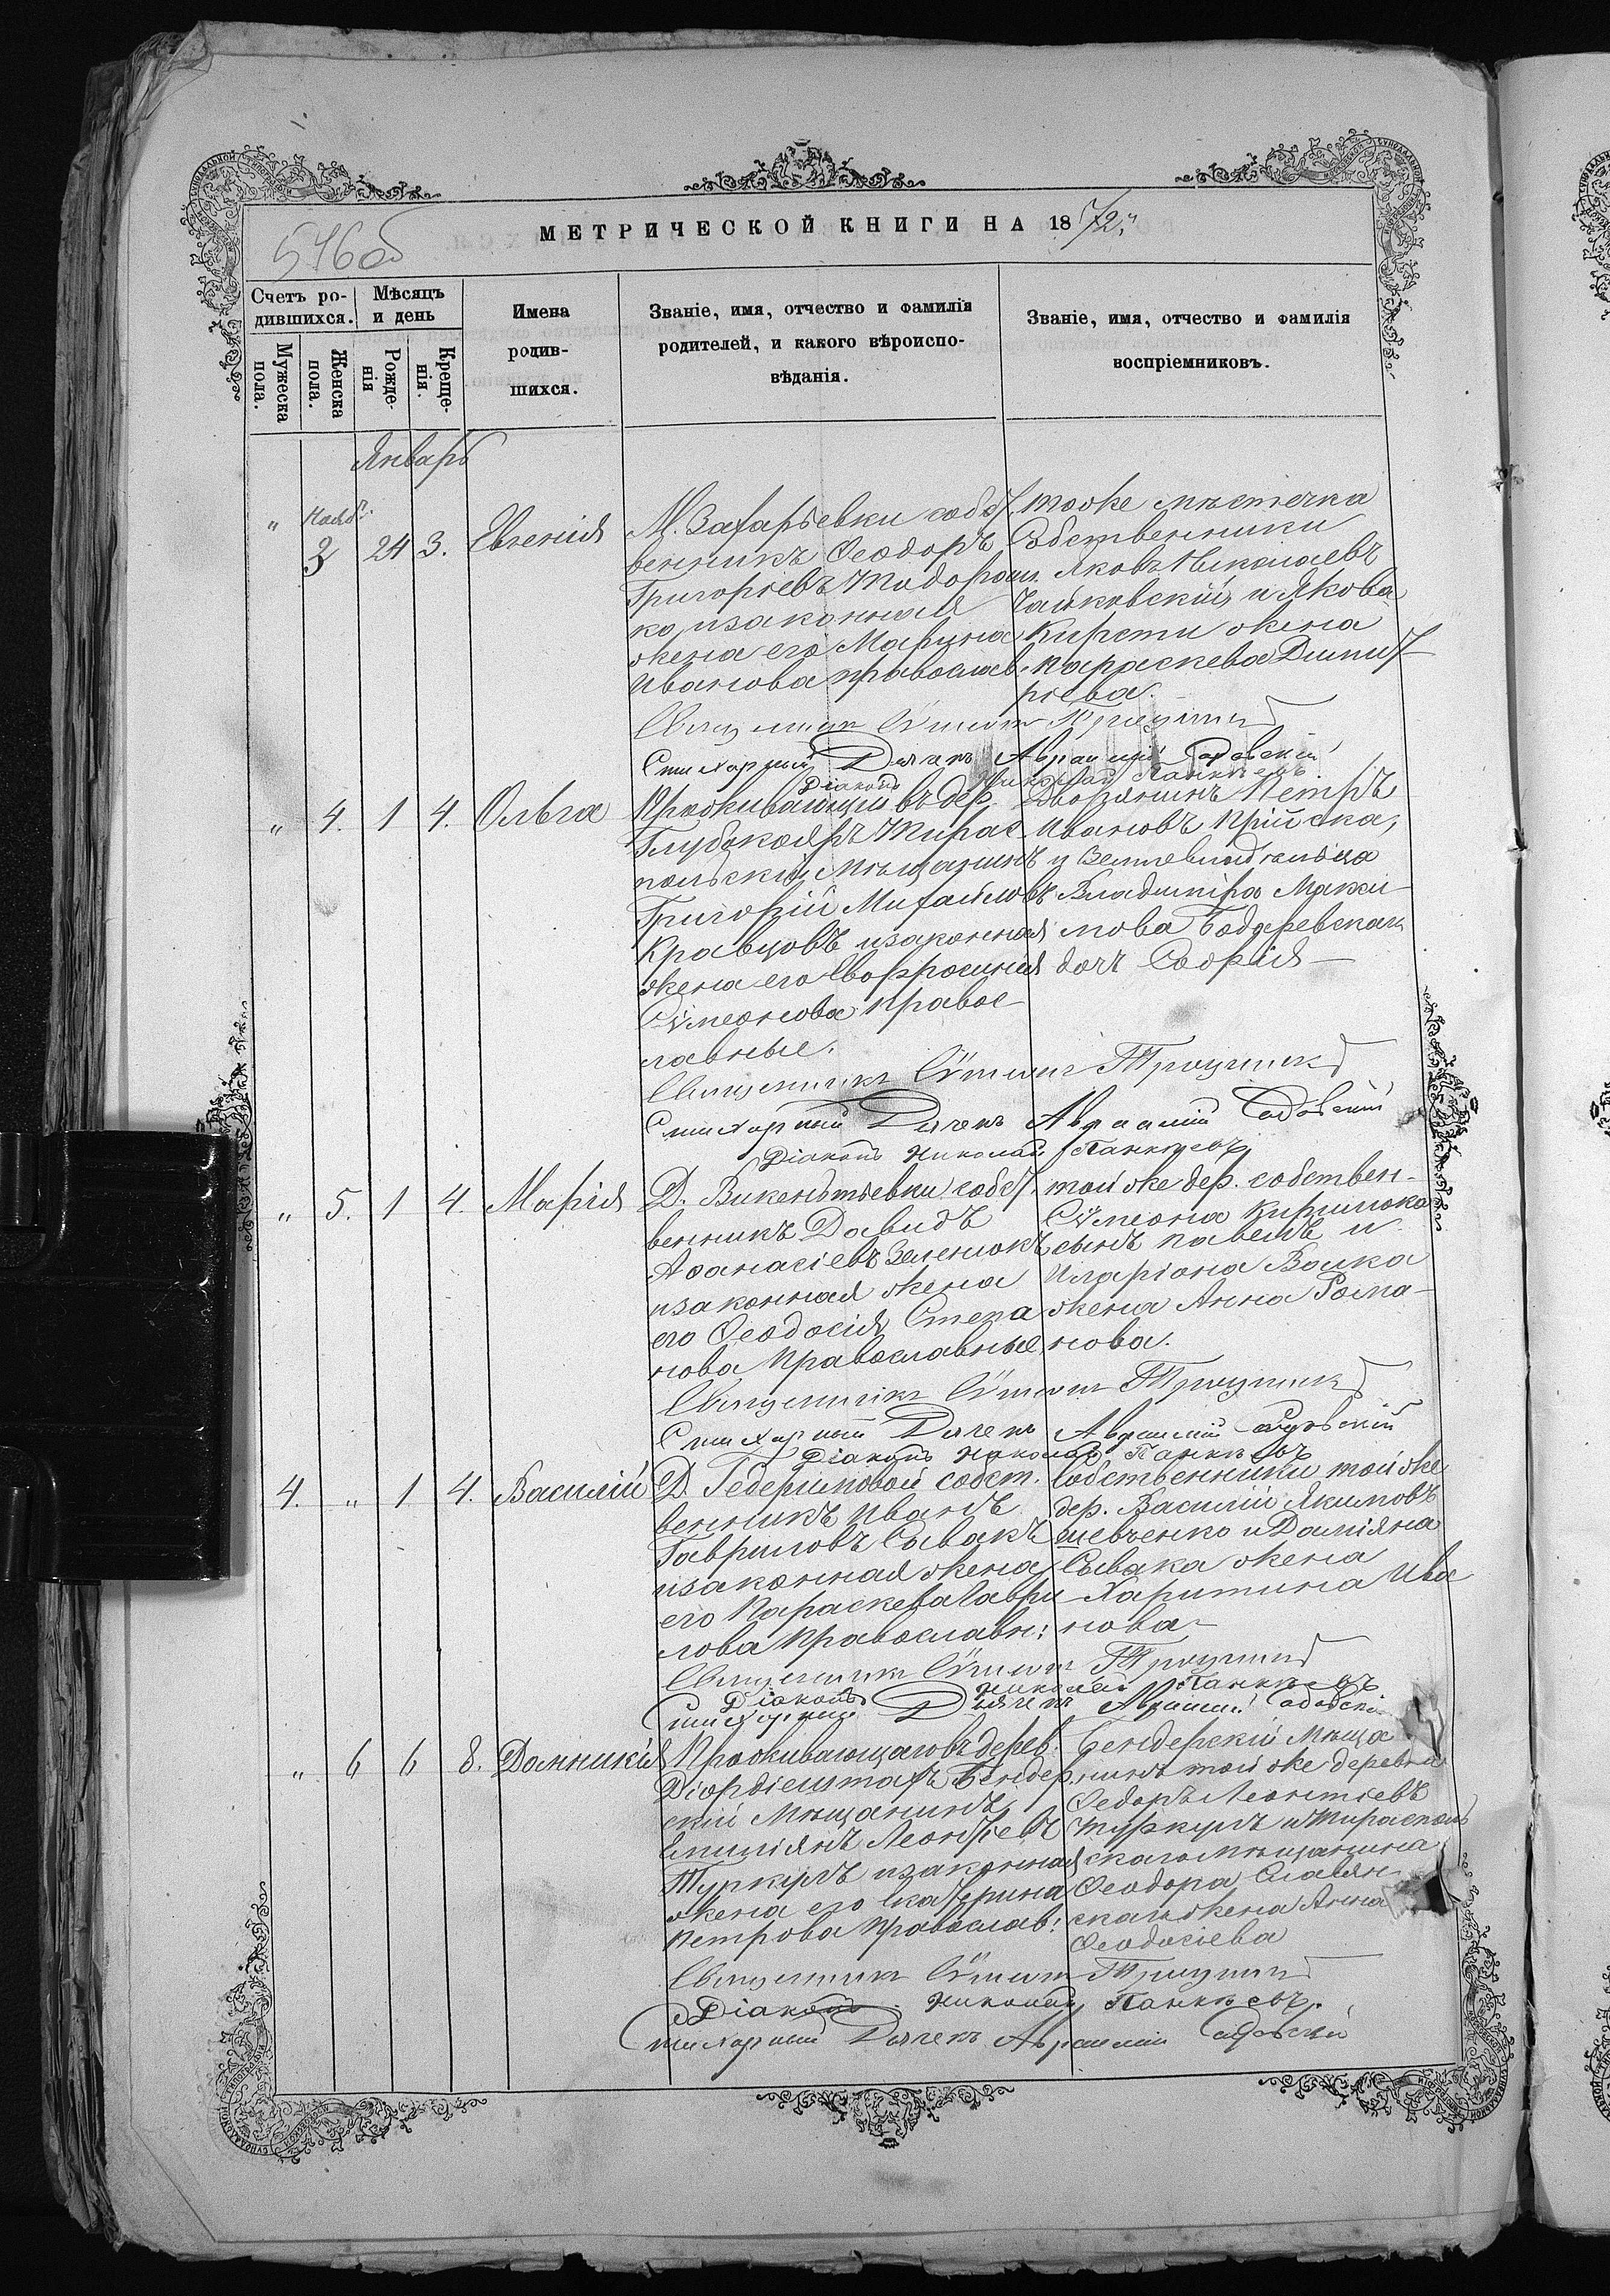 МЕТРИЧЕСКОЙ КНИГИ НА 1872"
546 об
Счетъ ро-
дившихся.
Мѣсяцъ
и день
Мужеска
пола.
Женска
пола.
Рожде-
нія
Креще-
нія.
Имена
родив-
шихся.
Званіе, имя, отчество и фамилія
родителей, и какого вѣроиспо-
вѣданія.
Званіе, имя, отчество и фамилія
воспріемниковъ.
Январь
" 3 24 3. Евгенія
М. Захарьевки собст
венникъ Ѳеодоръ
Григоріевъ Тодораш
ко, изаконная
жена его Марина
Иванова православ.
тоже мѣстечка
Собственники
Яковъ Николаевъ
Чайковскій, и Якова
Кирсти жена
Параскева Димит
ріева.
Священникъ Сѵмеонъ
Стихарный Дячекъ Авраамій Садовскій
Діаконъ Николай Панкѣевъ.
" 4. 1 4. Ольга
Проживающій въ дер.
Глубокояръ Тирас
польскій Мѣщанинъ
Григорій Михайловъ
Кравцовъ изаконная
жена его Евфросинія
Сѵмеонова Правос
лавные.
Дворянинъ Петръ
Ивановъ Прійска,
и Землевладельца
Владиміра Макси
мова Бодаревскаго
дочь Софія
Священникъ Сѵмеонъ
Стихарный Дячекъ Авраамій Садовскій
Діаконъ Николай Панкѣевъ
" 5. 1 4. Марія
Д. Викентьевки собст.
венникъ Давидъ
Аѳанасіевъ Зеленюкъ
изаконная жена
его Ѳеодосія Степа
нова Православные
той же дер. собствен-
Сѵмеона Кирилюка
сынъ Павелъ и
Иларіона Волка
жена Анна Рома-
нова.
Священникъ Сѵмеонъ
Стихарный Дячекъ Авраамій Садовскій
Діаконъ Николай Панкѣевъ
4. " 1 4. Василій
Д. Гедеримовой собст.
венникъ Иванъ
Гавриловъ Сывакъ
изаконная жена
его Параскева Гаври
лова Православн:
Собственники той же
дер. Василій Якимовъ
Шевченко и Даміяна
Сывака жена
Харитина Ива
нова
Священникъ Сѵмеонъ
Діаконъ Николай Панкѣевъ
Стихарный Дячекъ Авраамій Садовскій
" 6 6 8. Домникія
Проживающаго въ дерев.
Бендер.
скій Мѣщанинъ
Емиліянъ Леонтіевъ
Туркулъ изаконная
жена его Екатерина
Петрова Православ:
Бендерскій Мѣща
нинъ той же деревни
Ѳедоръ Леонтіевъ
Туркулъ и Тирасполь
скаго мѣщанина
Ѳеодора Славян-
скаго жена Анна
Ѳеодосіева
Священникъ Сѵмеонъ
Діаконъ Николай Панкѣевъ.
Стихарный Дячекъ Авраамій Садовскій